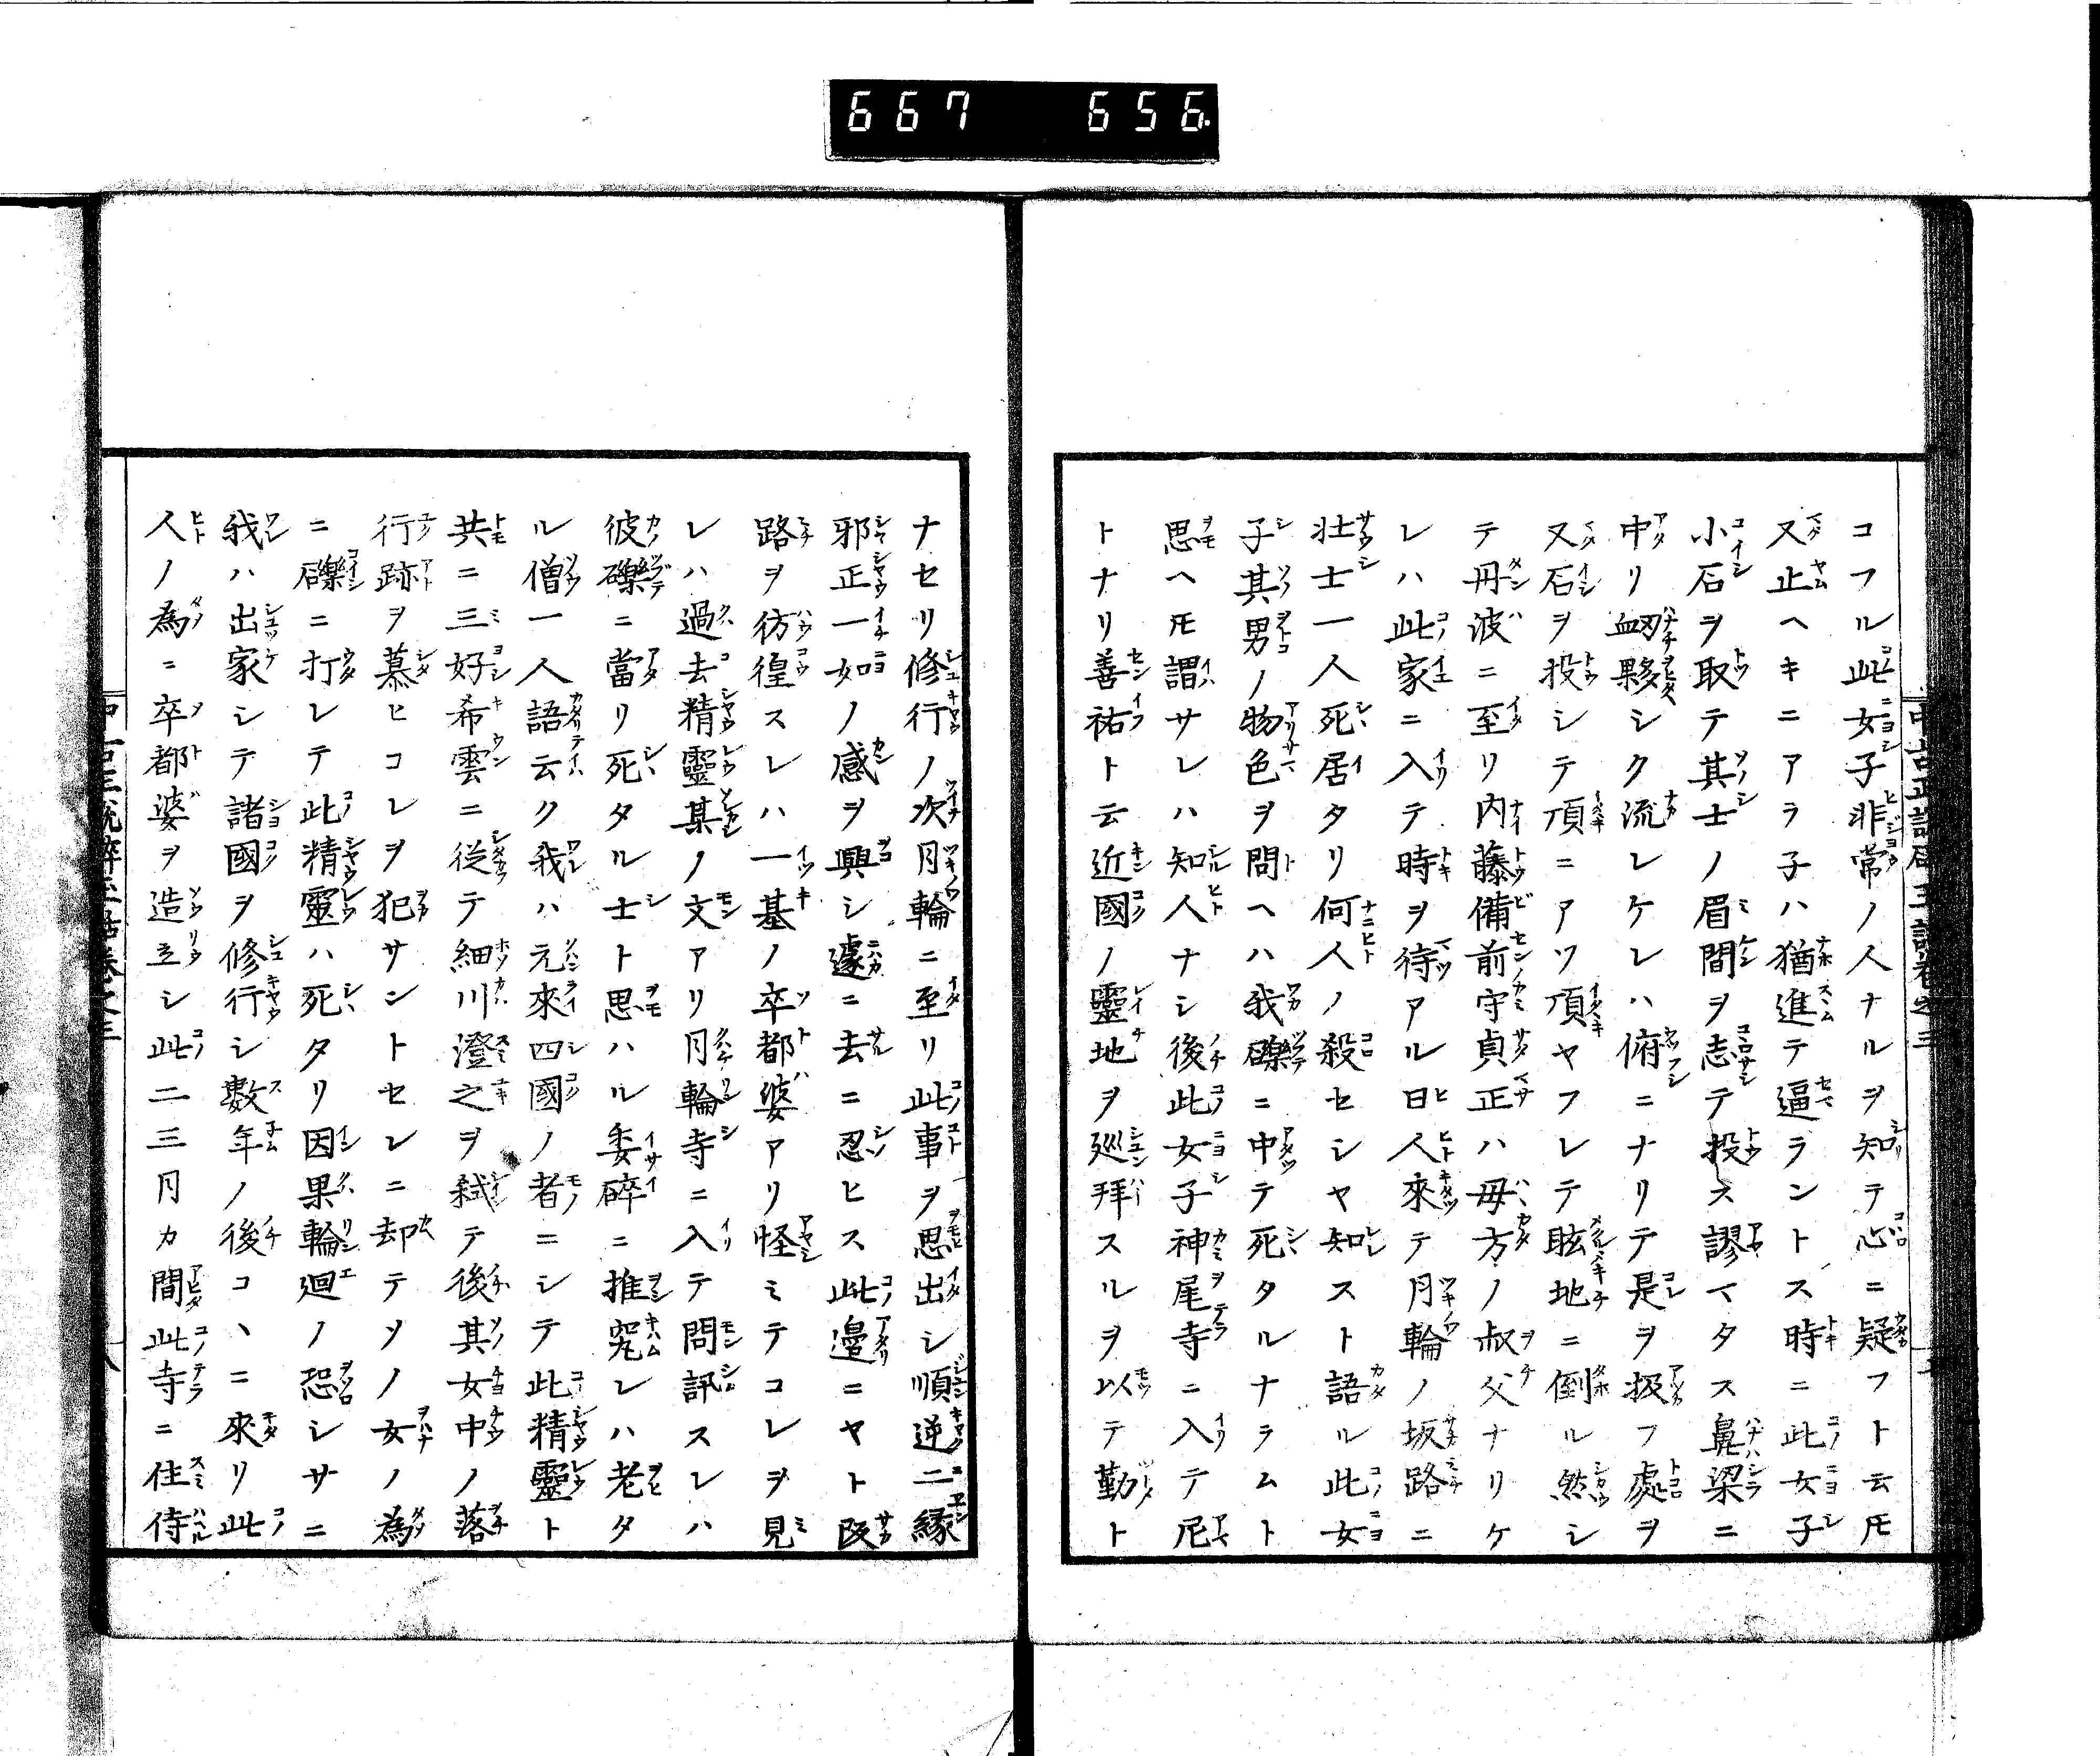 667 656
コフル此女子非常ノ人ナルヲ知テ心ニ疑フト云𪜈
又止ヘキニアラ子ハ猶進テ逼ラントス時ニ此女子
小石ヲ取テ其士ノ眉間ヲ志テ投ス謬マタス鼻梁ニ
中リ衂夥シク流レケレハ俯ニナリテ是ヲ扱フ處ヲ
又石ヲ投シテ頂ニアツ頂ヤフレテ眩地ニ倒ル然シ
テ丹波ニ至リ内藤備前守貞正ハ母方ノ叔父ナリケ
レハ此家ニ入テ時ヲ待アル日人來テ月輪ノ坂路ニ
壮士一人死居タリ何人ノ殺セシヤ知ストト語ル此女
子其男ノ物色ヲ問ヘハ我礫ニ中テ死タルナラムト
思ヘ𪜈謂サレハ知人ナシ後此女子神尾寺ニ入テ尼
トナリ善祐ト云近國ノ靈地ヲ巡拜スルヲ以テ勤ト
ナセリ修行ノ次月輪ニ至リ此事ヲ思出シ順逆二縁
邪正一如ノ感ヲ興シ遽ニ去ニ忍ヒス此邉ニヤト阪
路ヲ彷徨スレハ一基ノ卒都婆アリ怪ミテコレヲ見
レハ過去精靈某ノ文アリ月輪寺ニ入テ問訊スレハ
彼礫ニ當リ死タル士ト思ハル委碎ニ推究レハ老タ
ル僧一人語云ク我ハ元來四國ノ者ニシテ此精靈ト
共ニ三好希雲ニ從テ細川澄之ヲ弑テ後其女中ノ落
行跡ヲ慕ヒコレヲ犯サントセシニ却テソノ女ノ為
ニ礫ニ打レテ此精靈ハ死タリ因果輪廻ノ恐シサニ
我ハ出家シテ諸國ヲ修行シ數年ノ後コヽニ來リ此
人ノ為ニ卒都婆ヲ造立シ此二三月カ間此寺ニ住侍